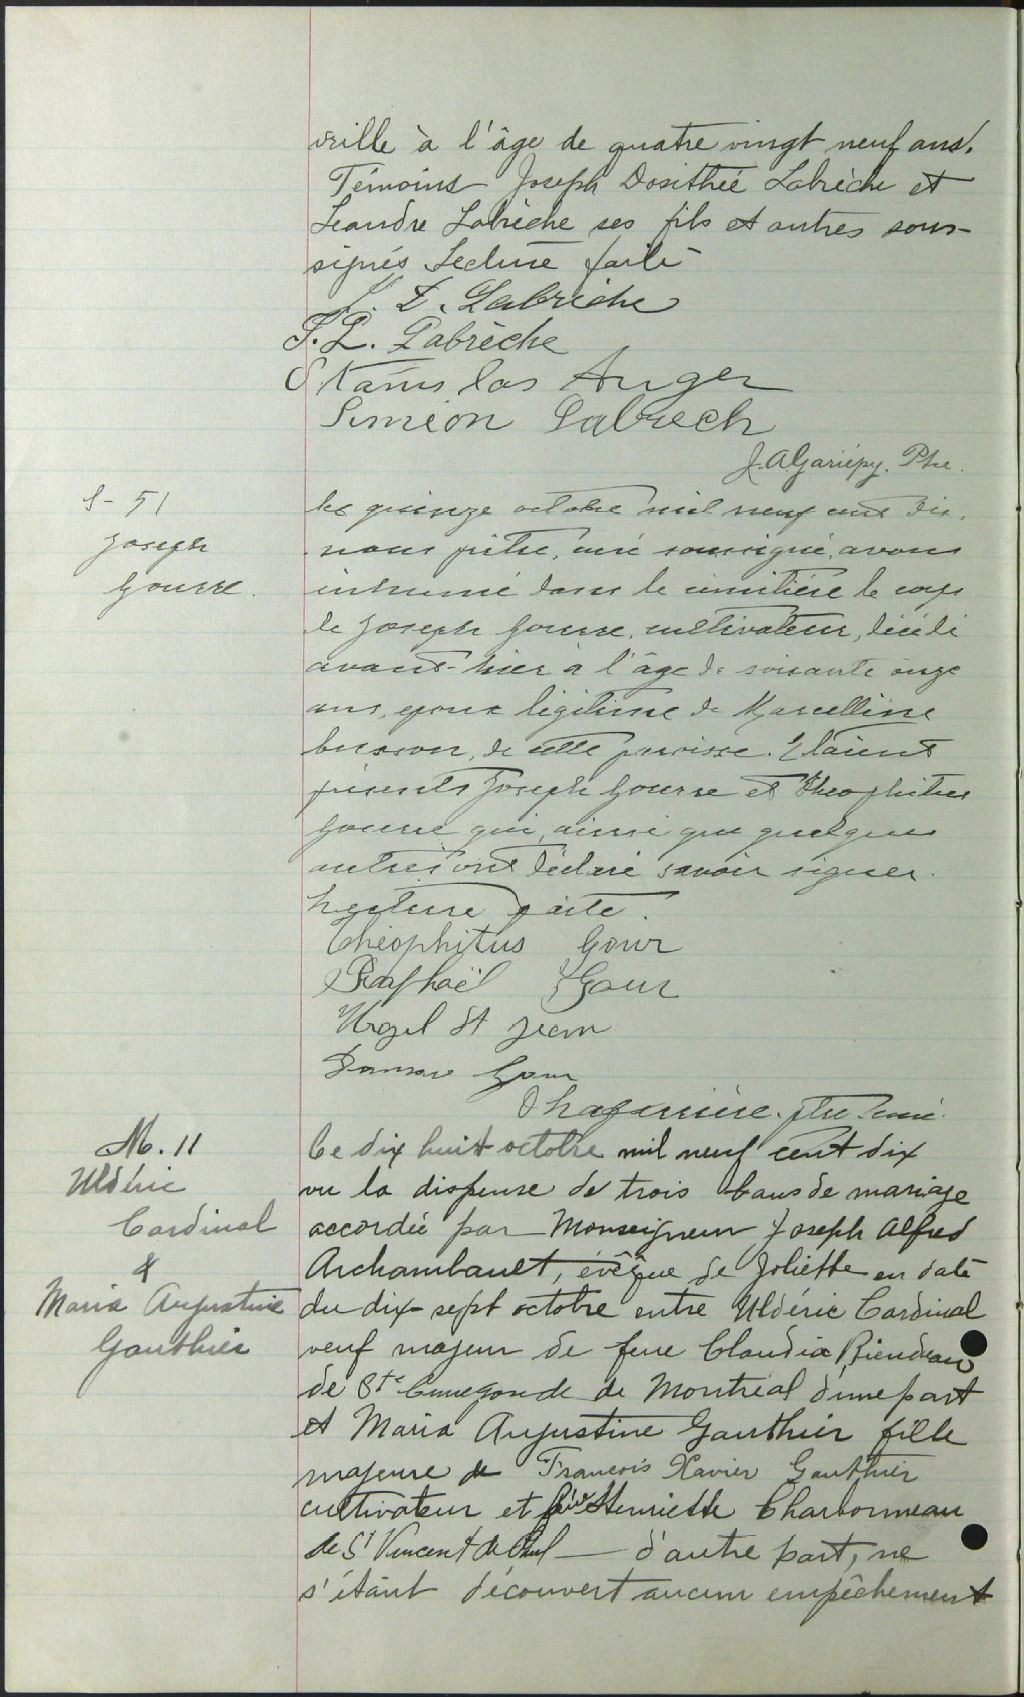 vrille à l'âge de quatre vingt neuf ans.
Témoins Joseph Dosithée Labrèche et
Léandre Labrèche ses fils et autres sous-
signés Lecture faite
J. D. Labrèche
J. L. Labrèche
Stanislas Auger
Simeon Labrech
J.A. Gariépy. Ptre.
S- 51
Joseph
Gourre.
Le quinze octobre mil neuf cent dix,
nous prêtre, curé soussigné, avons
inhumé dans le cimitière le corps
de Joseph Gourre, cultivateur, décédé
avant-hier à l'âge de soixante onze
ans, époux légitime de Marcelline
de cette paroisse. Etaient
présents Joseph Gourre et Théophitus
Gourre qui, ainsi que quelques
autres ont déclaré savoir signer.
Lecture faite.
Théophitus Gour
Raphaël Gour
Urgel St Jean
Gour
ptre curé.
M. 11
Uldéric
Cardinal
&
Maria Augustine
Gauthier
Ce dix huit octobre mil neuf cent dix
vu la dispense de trois bans de mariage
accordée par Monseigneur Joseph Alfred
Archambault, évêque de Joliette en date
du dix-sept octobre entre Uldéric Cardinal
veuf majeur de feue Claudia Riendeau
de Ste Cunegonde de Montréal d'une part
et Maria Augustine Gauthier fille
majeure de François Xavier Gauthier
cultivateur et Henriette Charbonneau
de St Vincent de Paul — d'autre part, ne
s'étant découvert aucun empêchement